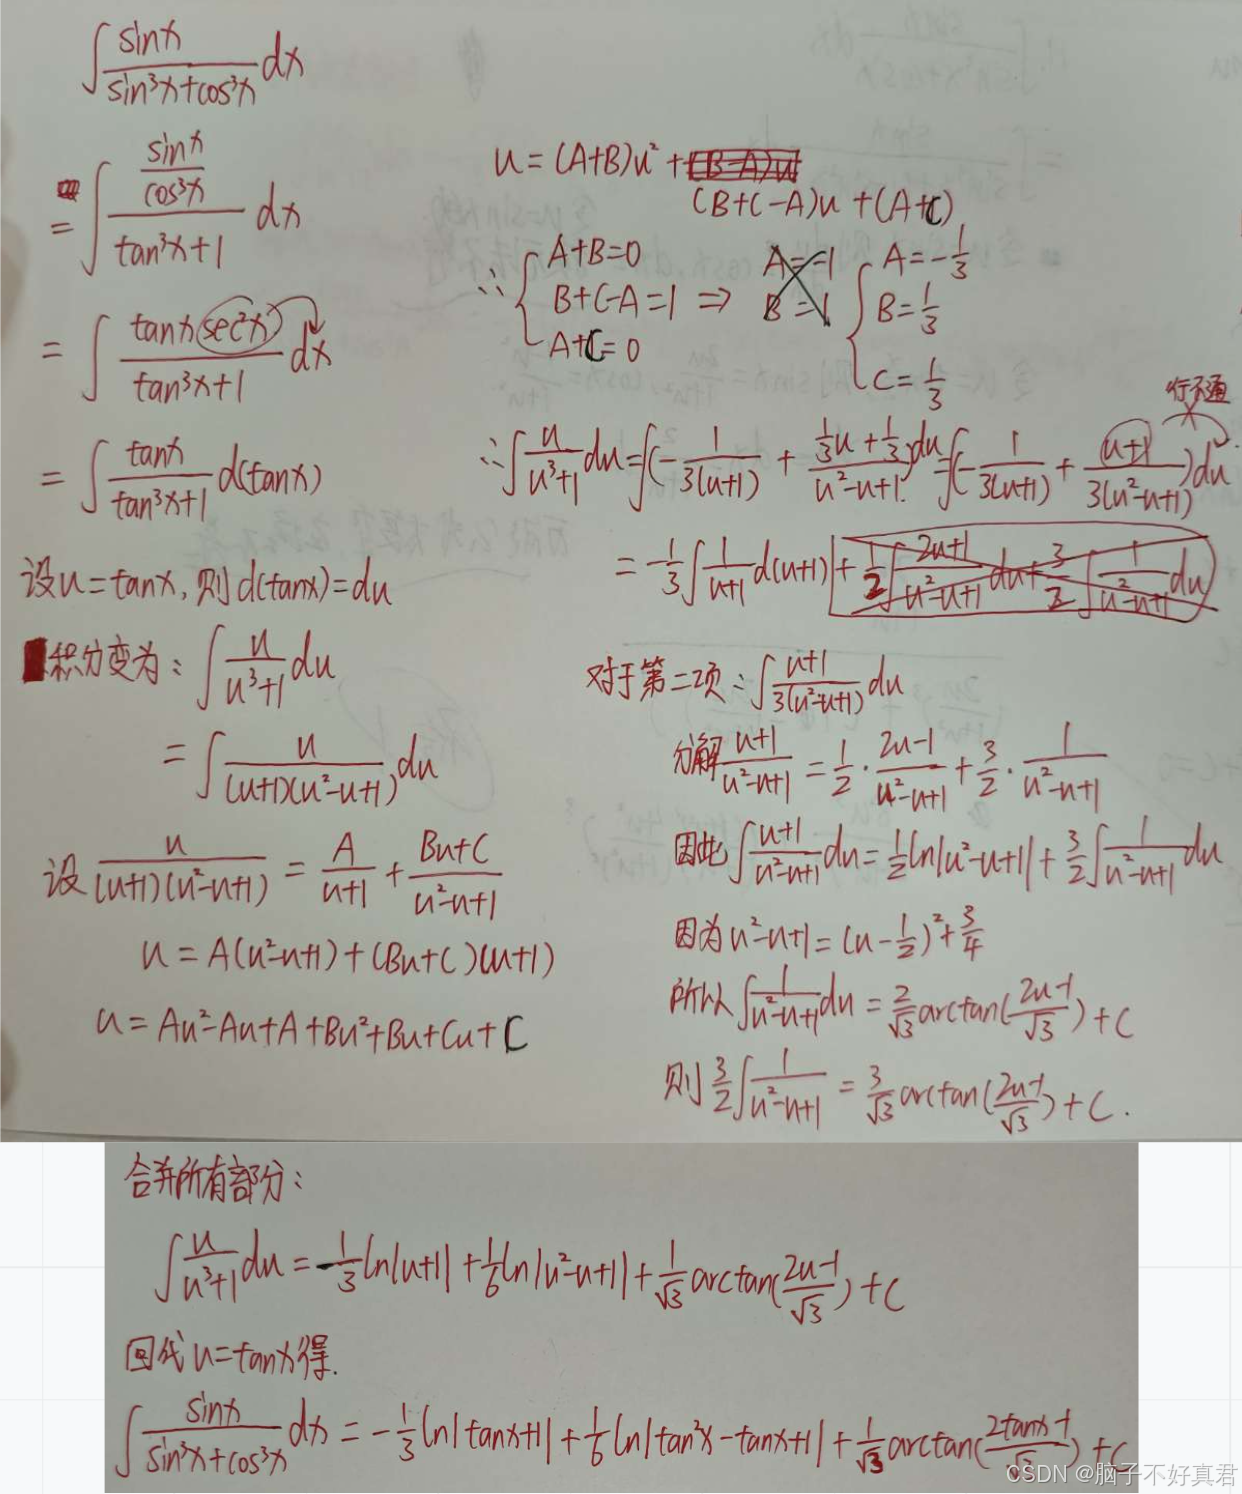 ∫ sinx/(sin³x+cos³x) dx
= ∫ (sinx/cos³x)/(tan³x+1) dx
= ∫ (tanx sec²x)/(tan³x+1) dx
= ∫ tanx/(tan³x+1) d(tanx)
设u=tanx, 则d(tanx)=du
积分变为: ∫ u/(u³+1) du
= ∫ u/((u+1)(u²-u+1)) du
设 u/((u+1)(u²-u+1)) = A/(u+1) + (Bu+C)/(u²-u+1)
u = A(u²-u+1)+(Bu+C)(u+1)
u = Au²-Au+A+Bu²+Bu+Cu+C
u = (A+B)u² + (B-A)u
(B+C-A)u+(A+C)
∴ { A+B=0
B+C-A=1 ⇒
A+C=0
A=-1
B=1
{ A=-1/3
B=1/3
C=1/3
行不通
∴ ∫ u/(u³+1) du = ∫(-1/(3(u+1)) + (1/3 u+1/3)/(u²-u+1))du = ∫(-1/(3(u+1)) + (u+1)/(3(u²-u+1)))du
= -1/3 ∫ 1/(u+1) d(u+1) + 1/2 ∫ (2u+1)/(u²-u+1) du + 3/2 ∫ 1/(u²-u+1) du
对于第二项: ∫ (u+1)/(3(u²-u+1)) du
分解 (u+1)/(u²-u+1) = 1/2 · (2u-1)/(u²-u+1) + 3/2 · 1/(u²-u+1)
因此 ∫ (u+1)/(u²-u+1) du = 1/2 ln|u²-u+1| + 3/2 ∫ 1/(u²-u+1) du
因为 u²-u+1 = (u-1/2)²+3/4
所以 ∫ 1/(u²-u+1) du = 2/√3 arctan((2u-1)/√3)+C
则 3/2 ∫ 1/(u²-u+1) = 3/√3 arctan((2u-1)/√3)+C.
合并所有部分:
∫ u/(u³+1) du = -1/3 ln|u+1| + 1/6 ln|u²-u+1| + 1/√3 arctan((2u-1)/√3)+C
回代u=tanx得.
∫ sinx/(sin³x+cos³x) dx = -1/3 ln|tanx+1| + 1/6 ln|tan²x-tanx+1| + 1/√3 arctan((2tanx-1)/√3)+C
CSDN @脑子不好真君